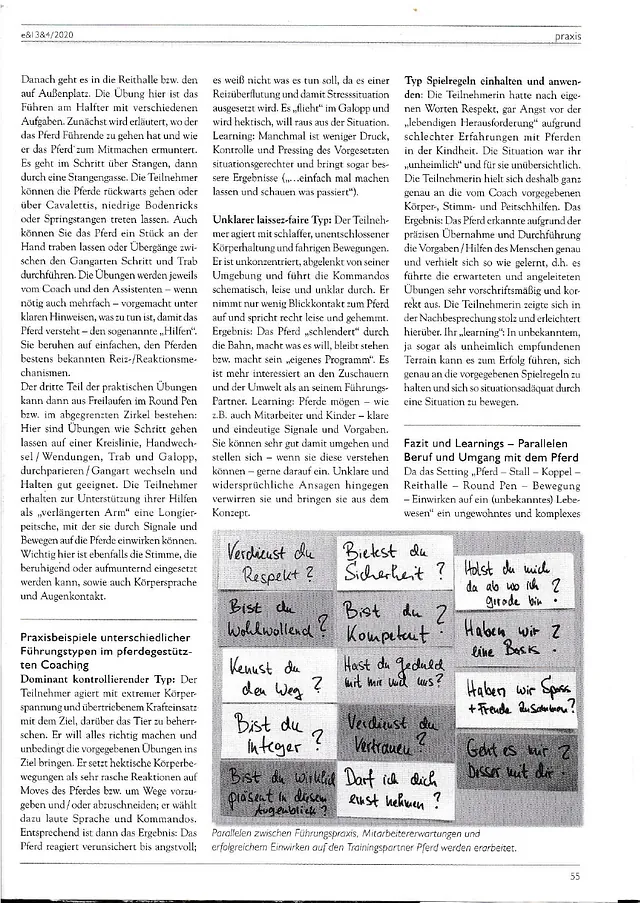 e&l 3&4/2020
praxis
Danach geht es in die Reithalle bzw. den
auf Außenplatz. Die Übung hier ist das
Führen am Halfter mit verschiedenen
Aufgaben. Zunächst wird erläutert, wo der
das Pferd Führende zu gehen hat und wie
er das Pferd zum Mitmachen ermuntert.
Es geht im Schritt über Stangen, dann
durch eine Stangengasse. Die Teilnehmer
können die Pferde rückwärts gehen oder
über Cavalettis, niedrige Bodenricks
oder Springstangen treten lassen. Auch
können Sie das Pferd ein Stück an der
Hand traben lassen oder Übergänge zwi-
schen den Gangarten Schritt und Trab
durchführen. Die Übungen werden jeweils
vom Coach und den Assistenten – wenn
nötig auch mehrfach – vorgemacht unter
klaren Hinweisen, was zu tun ist, damit das
Pferd versteht – den sogenannte „Hilfen".
Sie beruhen auf einfachen, den Pferden
bestens bekannten Reiz-/Reaktionsme-
chanismen.
Der dritte Teil der praktischen Übungen
kann dann aus Freilaufen im Round Pen
bzw. im abgegrenzten Zirkel bestehen:
Hier sind Übungen wie Schritt gehen
lassen auf einer Kreislinie, Handwech-
sel / Wendungen, Trab und Galopp,
durchparieren / Gangart wechseln und
Halten gut geeignet. Die Teilnehmer
erhalten zur Unterstützung ihrer Hilfen
als „verlängerten Arm" eine Longier-
peitsche, mit der sie durch Signale und
Bewegen auf die Pferde einwirken können.
Wichtig hier ist ebenfalls die Stimme, die
beruhigend oder aufmunternd eingesetzt
werden kann, sowie auch Körpersprache
und Augenkontakt.
Praxisbeispiele unterschiedlicher
Führungstypen im pferdegestütz-
ten Coaching
Dominant kontrollierender Typ: Der
Teilnehmer agiert mit extremer Körper-
spannung und übertriebenem Krafteinsatz
mit dem Ziel, darüber das Tier zu beherr-
schen. Er will alles richtig machen und
unbedingt die vorgegebenen Übungen ins
Ziel bringen. Er setzt hektische Körperbe-
wegungen als sehr rasche Reaktionen auf
Moves des Pferdes bzw. um Wege vorzu-
geben und / oder abzuschneiden; er wählt
dazu laute Sprache und Kommandos.
Entsprechend ist dann das Ergebnis: Das
Pferd reagiert verunsichert bis angstvoll;
es weiß nicht was es tun soll, da es einer
Reizüberflutung und damit Stresssituation
ausgesetzt wird. Es „flieht" im Galopp und
wird hektisch, will raus aus der Situation.
Learning: Manchmal ist weniger Druck,
Kontrolle und Pressing des Vorgesetzten
situationsgerechter und bringt sogar bes-
sere Ergebnisse („...einfach mal machen
lassen und schauen was passiert").
Unklarer laissez-faire Typ: Der Teilneh-
mer agiert mit schlaffer, unentschlossener
Körperhaltung und fahrigen Bewegungen.
Er ist unkonzentriert, abgelenkt von seiner
Umgebung und führt die Kommandos
schematisch, leise und unklar durch. Er
nimmt nur wenig Blickkontakt zum Pferd
auf und spricht recht leise und gehemmt.
Ergebnis: Das Pferd „schlendert" durch
die Bahn, macht was es will, bleibt stehen
bzw. macht sein „eigenes Programm". Es
ist mehr interessiert an den Zuschauern
und der Umwelt als an seinem Führungs-
Partner. Learning: Pferde mögen – wie
z.B. auch Mitarbeiter und Kinder – klare
und eindeutige Signale und Vorgaben.
Sie können sehr gut damit umgehen und
stellen sich – wenn sie diese verstehen
können – gerne darauf ein. Unklare und
widersprüchliche Ansagen hingegen
verwirren sie und bringen sie aus dem
Konzept.
Typ Spielregeln einhalten und anwen-
den: Die Teilnehmerin hatte nach eige-
nen Worten Respekt, gar Angst vor der
„lebendigen Herausforderung" aufgrund
schlechter Erfahrungen mit Pferden
in der Kindheit. Die Situation war ihr
„unheimlich" und für sie unübersichtlich.
Die Teilnehmerin hielt sich deshalb ganz
genau an die vom Coach vorgegebenen
Körper-, Stimm- und Peitschhilfen. Das
Ergebnis: Das Pferd erkannte aufgrund der
präzisen Übernahme und Durchführung
die Vorgaben / Hilfen des Menschen genau
und verhielt sich so wie gelernt, d.h. es
führte die erwarteten und angeleiteten
Übungen sehr vorschriftsmäßig und kor-
rekt aus. Die Teilnehmerin zeigte sich in
der Nachbesprechung stolz und erleichtert
hierüber. Ihr „learning": In unbekanntem,
ja sogar als unheimlich empfundenen
Terrain kann es zum Erfolg führen, sich
genau an die vorgegebenen Spielregeln zu
halten und sich so situationsadäquat durch
eine Situation zu bewegen.
Fazit und Learnings – Parallelen
Beruf und Umgang mit dem Pferd
Da das Setting „Pferd – Stall – Koppel –
Reithalle – Round Pen – Bewegung
– Einwirken auf ein (unbekanntes) Lebe-
wesen" ein ungewohntes und komplexes
Verdienst du
Respekt?
Bist du
Wohlwollend?
Kennst du
den Weg?
Bist du
Integer?
Bist du wirklich
präsent in diesem
Augenblick?
Bietest du
Sicherheit?
Bist du
Kompetent?
Hast du Geduld
mit mir und uns?
Verdienst du
Vertrauen?
Darf ich dich
ernst nehmen?
Holst du mich
da ab wo ich
gerade bin?
Haben wir
eine Basis?
Haben wir Spass
+ Freude zusammen?
Geht es mir
besser mit dir?
Parallelen zwischen Führungspraxis, Mitarbeitererwartungen und
erfolgreichem Einwirken auf den Trainingspartner Pferd werden erarbeitet.
55